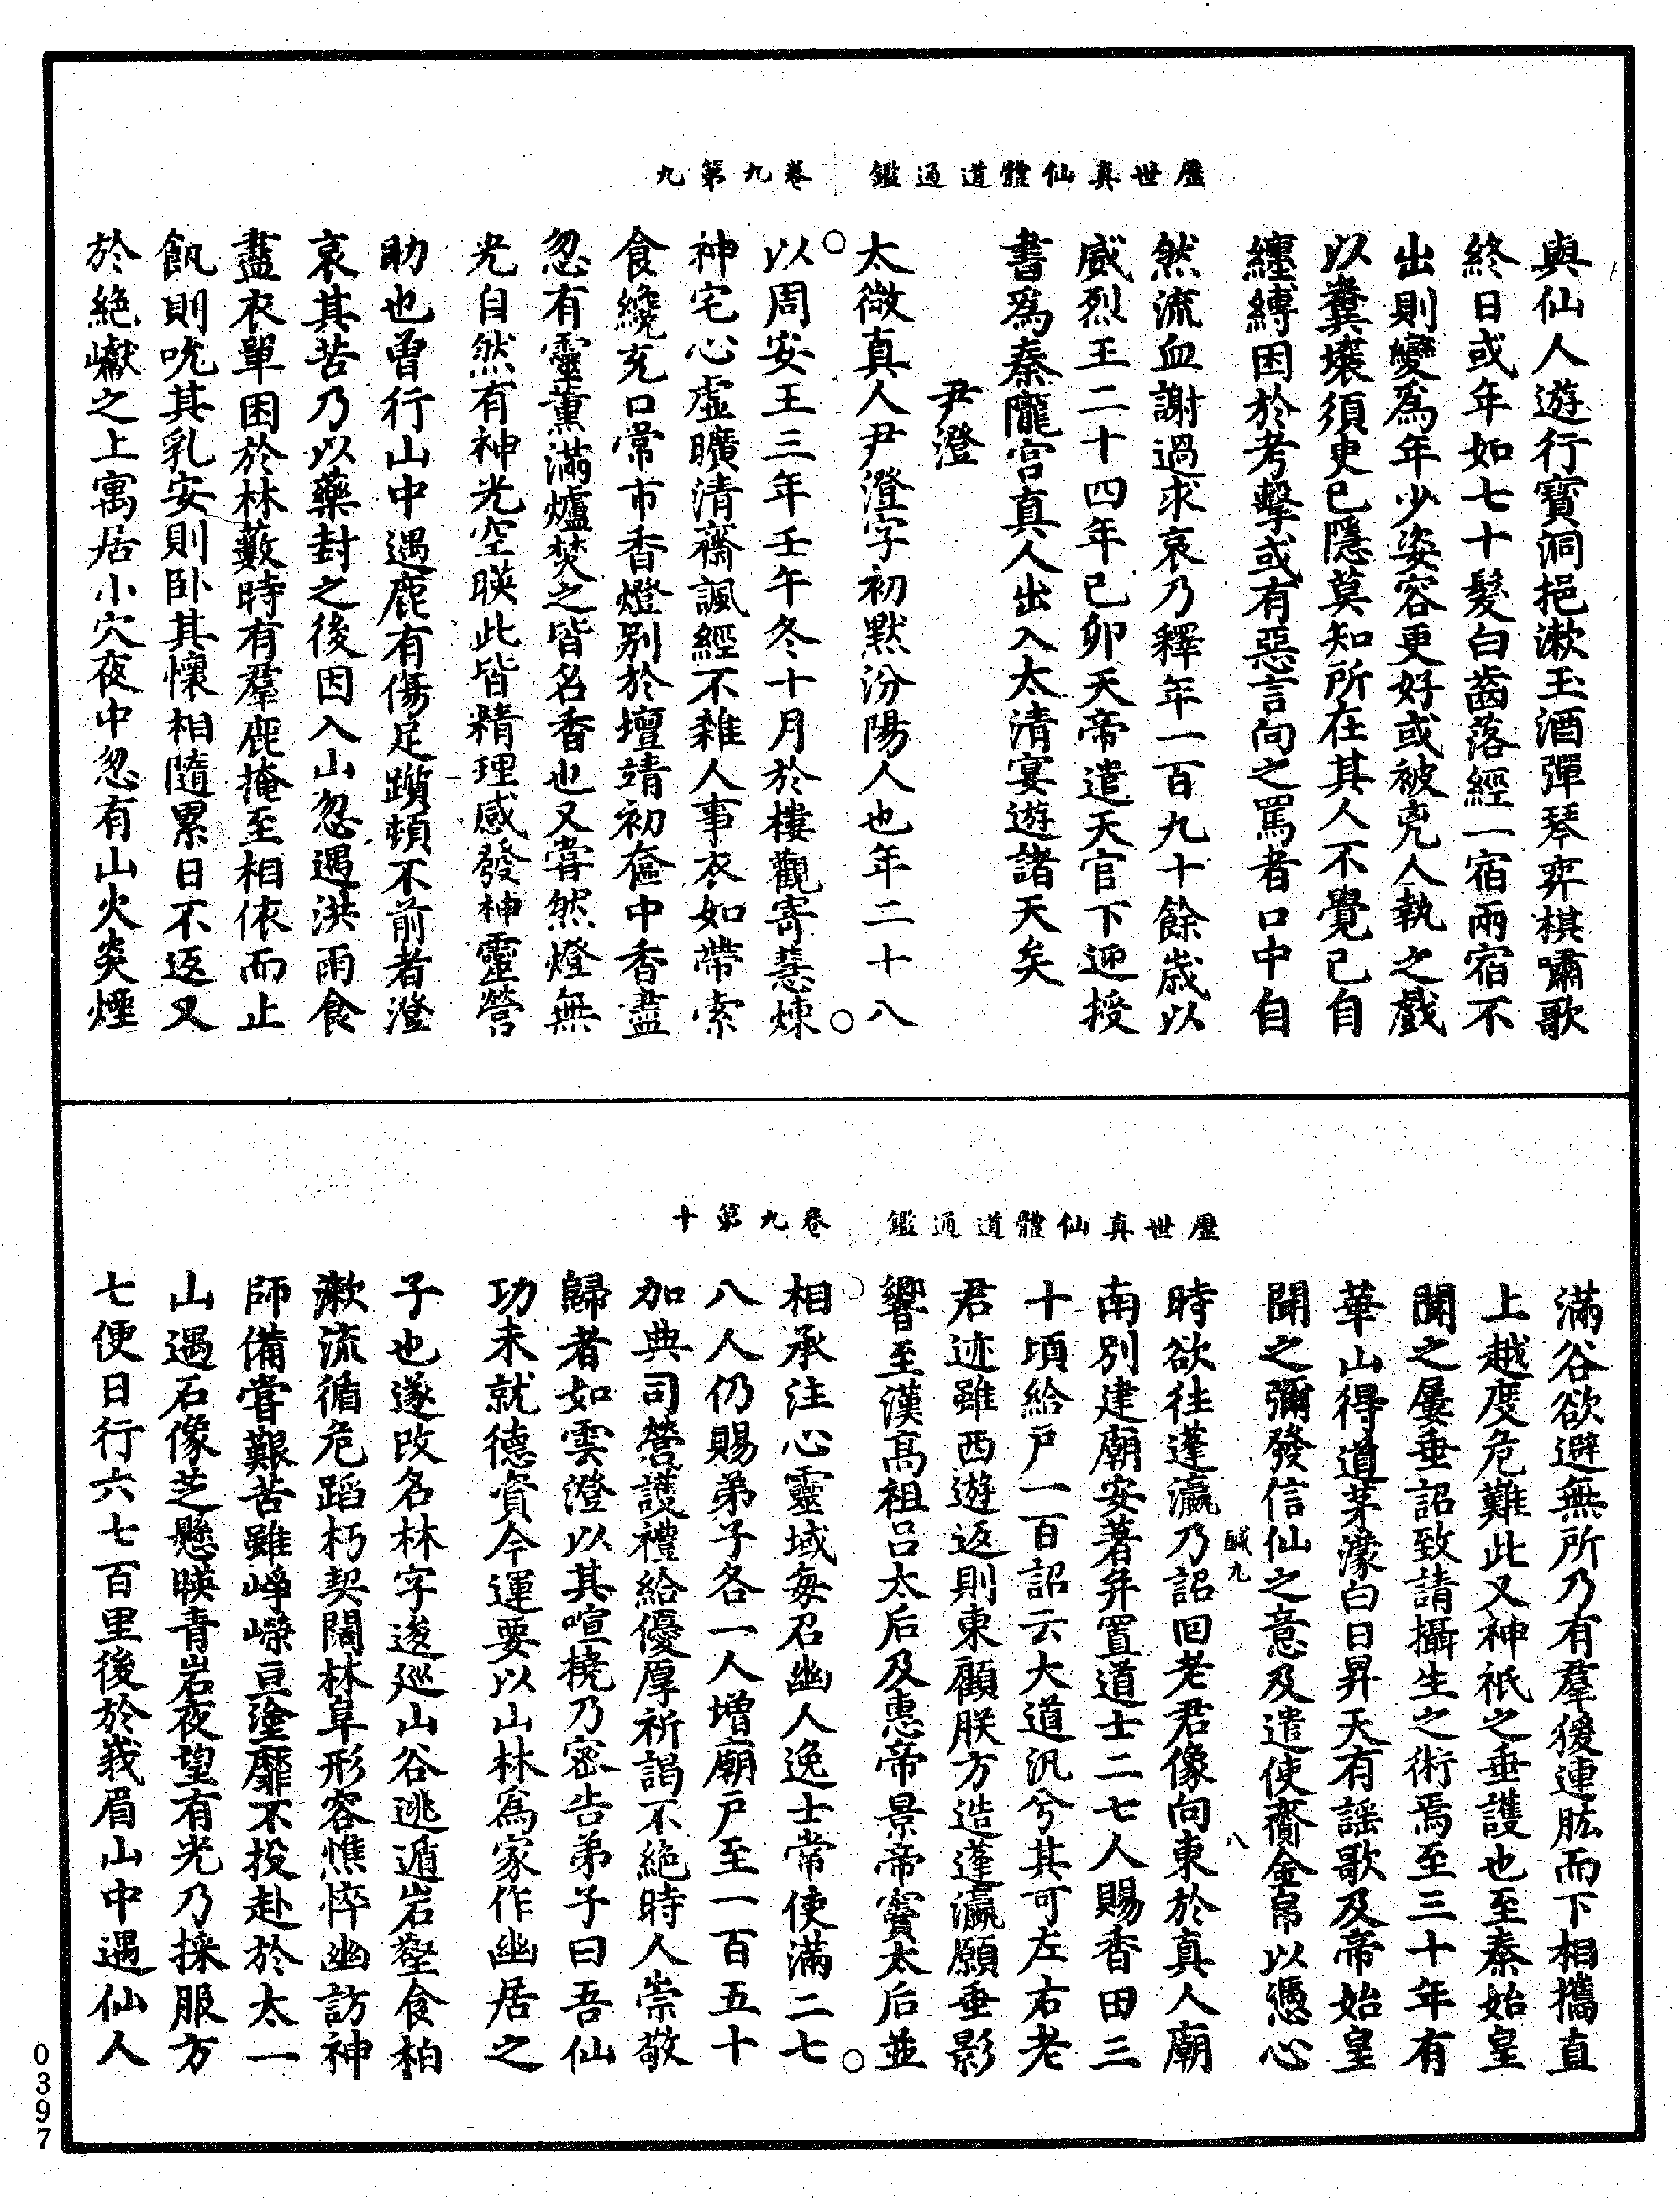 歷世真仙體道通鑑　卷九第九
與仙人遊行寶洞挹漱玉酒彈琴弈棋嘯歌
終日或年如七十髮白齒落經一宿兩宿不
出則變爲年少姿容更好或被兇人執之戲
以糞壤須臾已隱莫知所在其人不覺已自
纏縛困於考擊或有惡言向之罵者口中自
然流血謝過求哀乃釋年一百九十餘歲以
威烈王二十四年己卯天帝遣天官下迎授
書爲秦隴宫真人出入太清宴遊諸天矣
尹澄
太微真人尹澄字初默汾陽人也年二十八
以周安王三年壬午冬十月於樓觀寄慧煉
神宅心虛曠清齋諷經不雜人事衣如帶索
食纔充口常市香燈别於壇靖初奩中香盡
忽有靈薰滿爐焚之皆名香也又嘗然燈無
光自然有神光空暎此皆精理感發神靈營
助也曾行山中遇鹿有傷足躓頓不前者澄
哀其苦乃以藥封之後因入山忽遇洪雨食
盡衣單困於林藪時有羣鹿掩至相依而止
飢則吮其乳安則卧其懷相隨累日不返又
於絶巘之上寓居小穴夜中忽有山火炎煙
歷世真仙體道通鑑　卷九第十
滿谷欲避無所乃有羣猨連肱而下相攜直
上越度危難此又神祇之垂護也至秦始皇
聞之屢垂詔致請攝生之術焉至三十年有
華山得道茅濛白日昇天有謡歌及帝始皇
聞之彌發信仙之意及遣使齎金帛以憑心
鹹九　八
時欲往蓬瀛乃詔回老君像向東於真人廟
南別建廟安著并置道士二七人賜香田三
十頃給戸一百詔云大道汎兮其可左右老
君迹雖西遊返則東顧朕方造蓬瀛願垂影
響至漢高祖吕太后及惠帝景帝竇太后並
相承注心靈域每召幽人逸士常使滿二七
八人仍賜弟子各一人增廟戸至一百五十
加典司營護禮給優厚祈謁不絶時人崇敬
歸者如雲澄以其喧橈乃密告弟子曰吾仙
功未就德資今運要以山林爲家作幽居之
子也遂改名林字遂巡山谷逃遁岩壑食柏
漱流循危蹈朽契闊林阜形容憔悴幽訪神
師備嘗艱苦雖崢嶸亘塗靡不投赴於太一
山遇石像芝懸暎青岩夜望有光乃採服方
七便日行六七百里後於峩眉山中遇仙人
0397